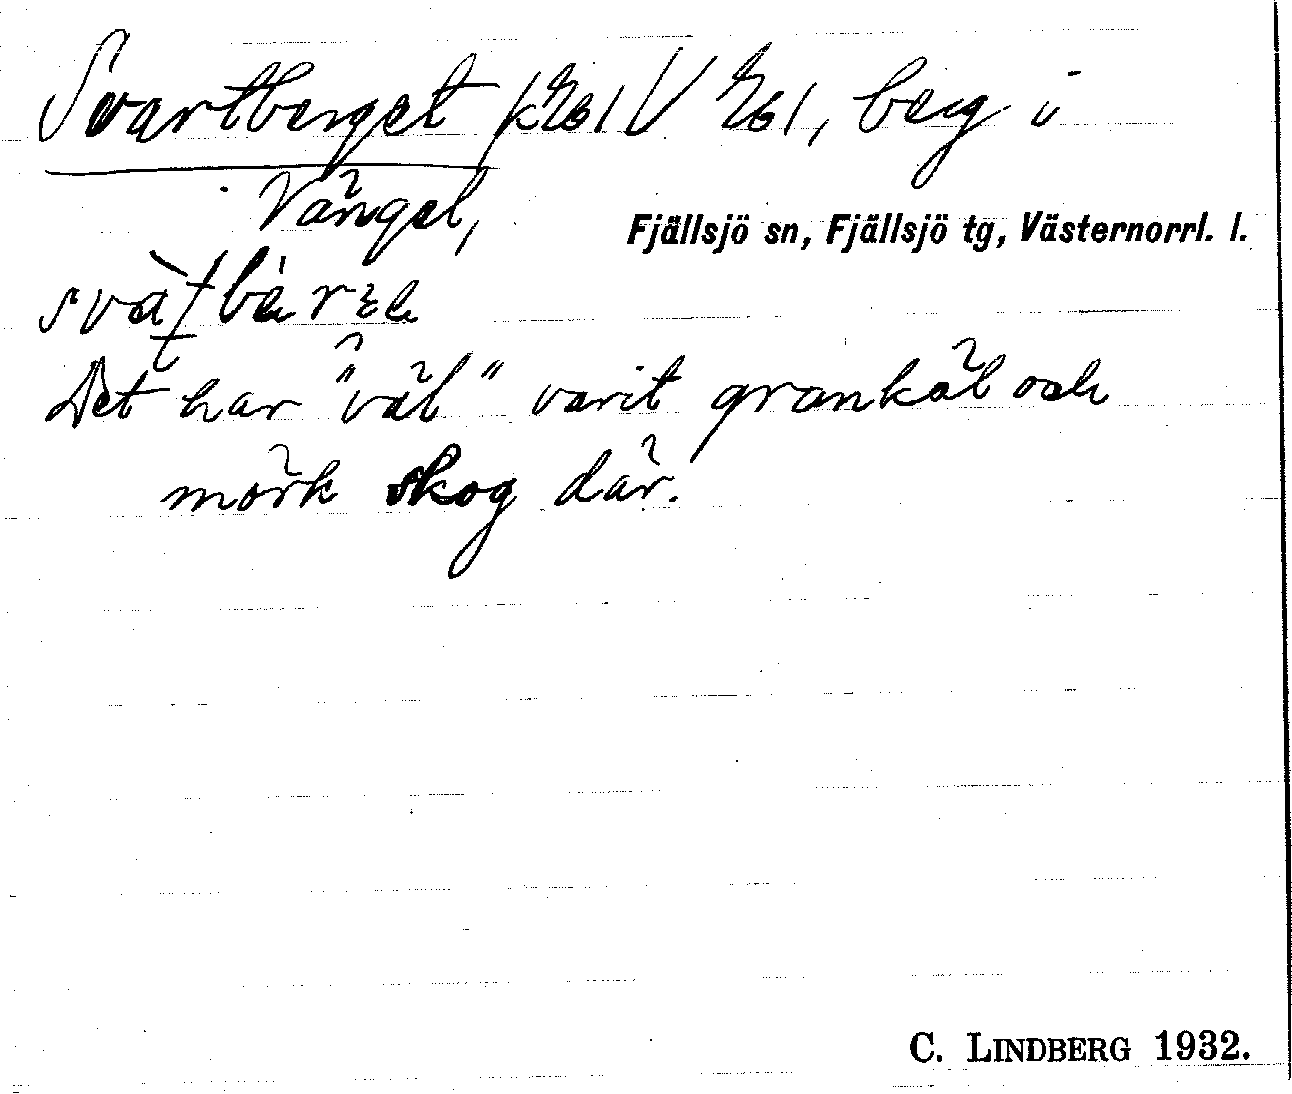 Svartberget berg i
Vängel,
Fjällsjö sn, Fjällsjö tg, Västernorrl. l.
Det har "väl" varit grankäl och
mörk skog där.
C. LINDBERG 1932.